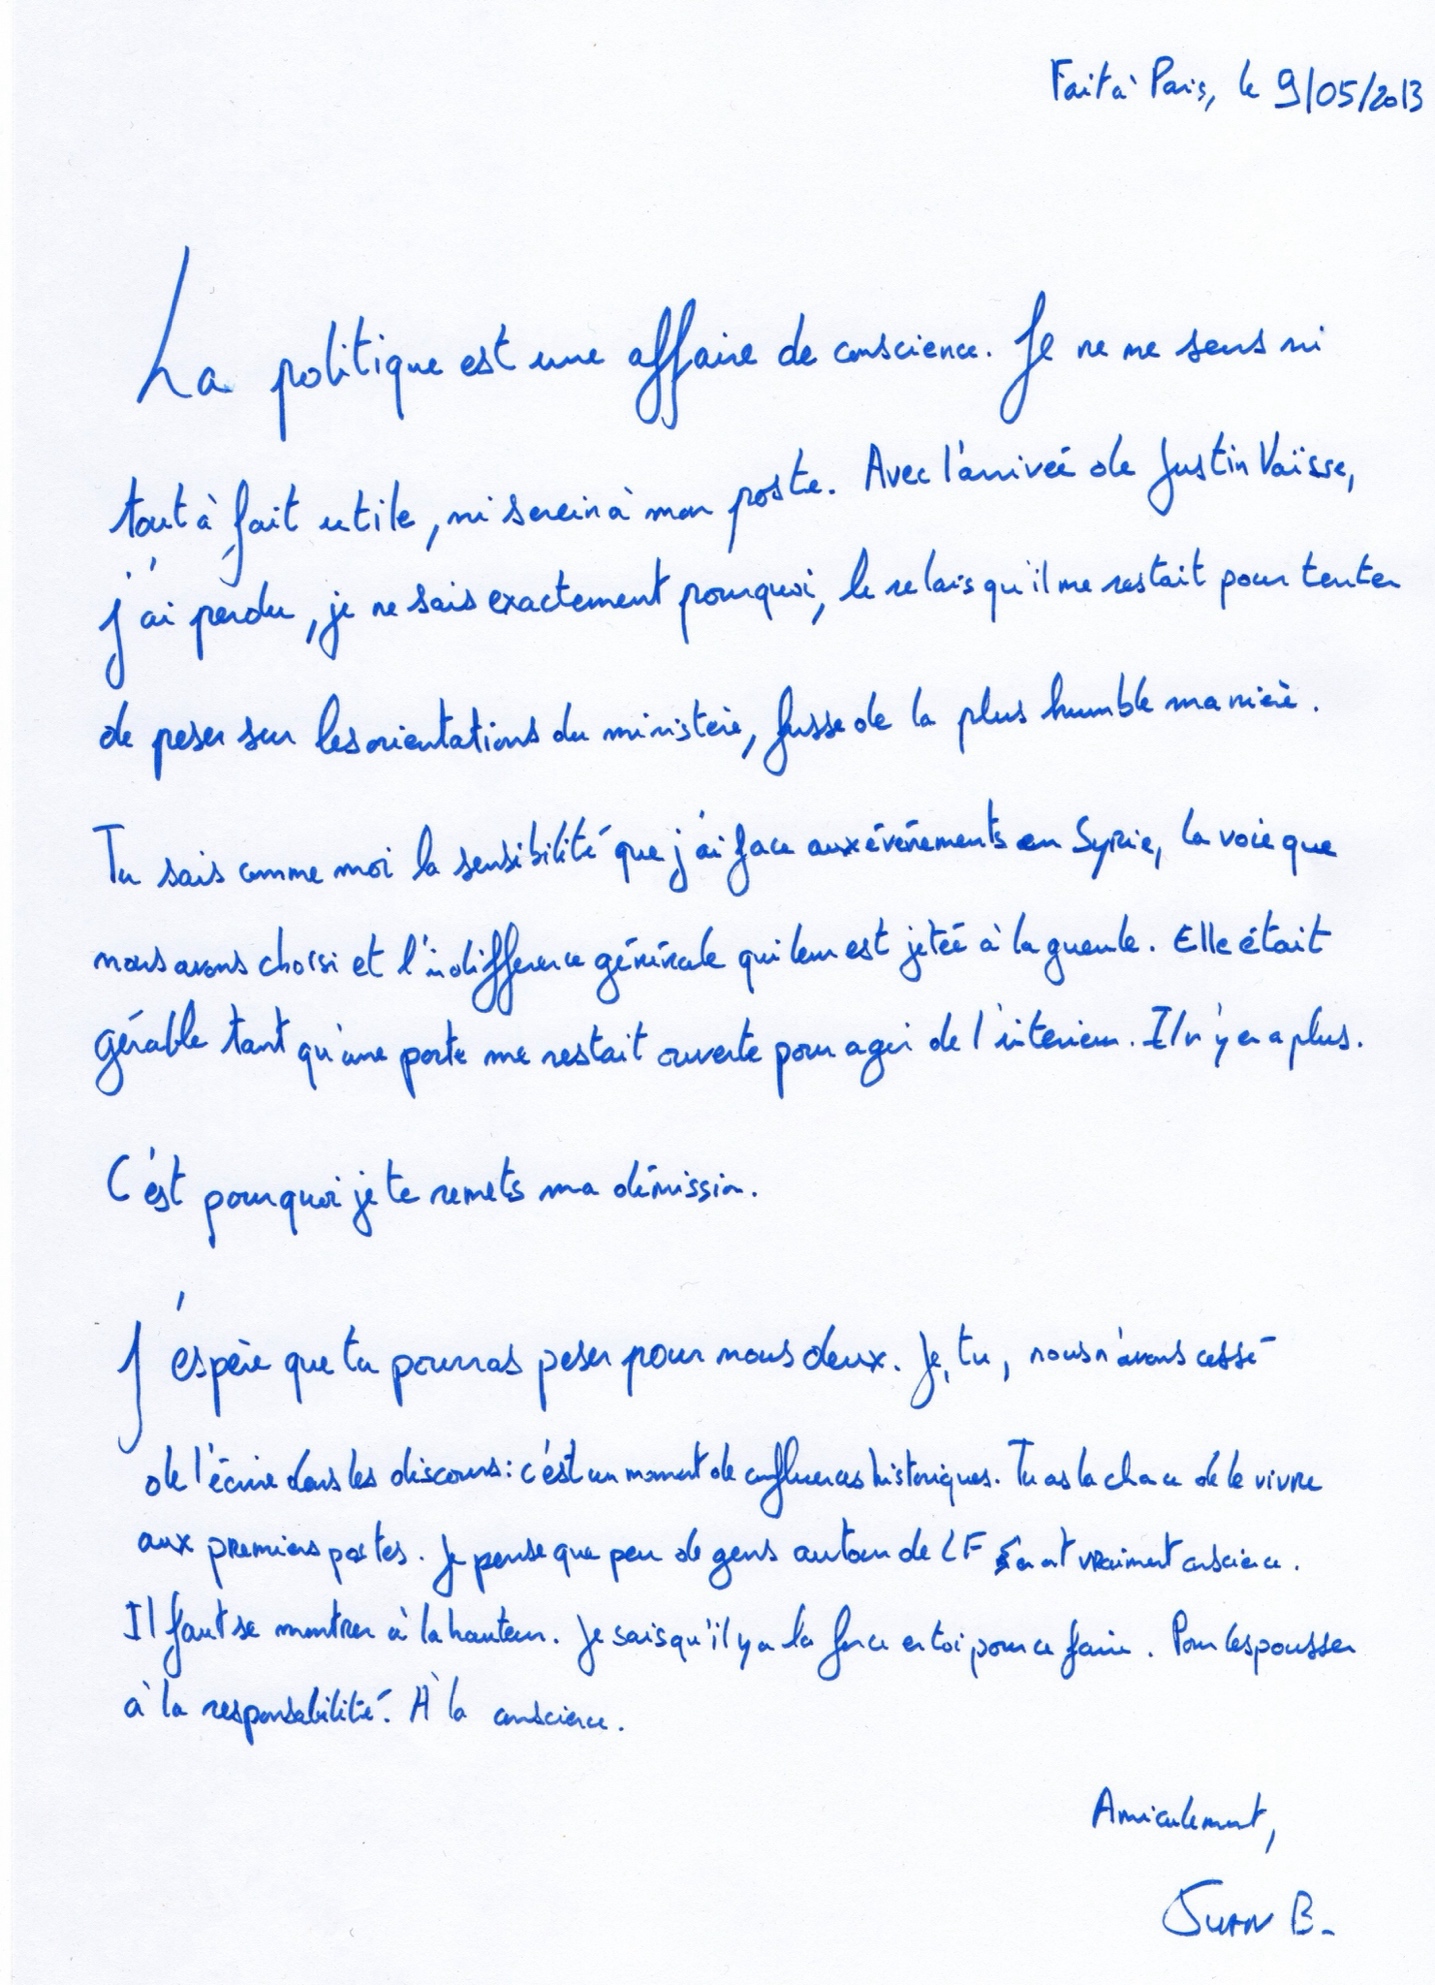 Fait à Paris, le 9/05/2013
La politique est une affaire de conscience. Je ne me sens ni
tout à fait utile, ni serein à mon poste. Avec l'arrivée de Justin Vaïsse,
j'ai perdu, je ne sais exactement pourquoi, le relais qu'il me restait pour tenter
de peser sur les orientations du ministère, fusse de la plus humble manière.
Tu sais comme moi la sensibilité que j'ai face aux événements en Syrie, la voie que
nous avons choisi et l'indifférence générale qui leur est jetée à la gueule. Elle était
gérable tant qu'une porte me restait ouverte pour agir de l'intérieur. Il n'y en a plus.
C'est pourquoi je te remets ma démission.
J'espère que tu pourras peser pour nous deux. Je, tu, nous n'avons cessé
de l'écrire dans les discours : c'est un moment de confluences historiques. Tu as la chance de le vivre
aux premiers postes. Je pense que peu de gens autour de LF en ont vraiment conscience.
Il faut se montrer à la hauteur. Je sais qu'il y a la force en toi pour ce faire. Pour les pousser
à la responsabilité. À la conscience.
Amicalement,
JUAN B.